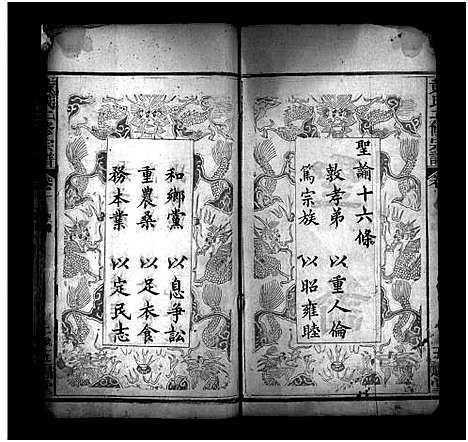 聖諭十六條
敦孝弟 以重人倫
篤宗族 以昭雍睦
和鄉黨 以息爭訟
重農桑 以足衣食
務本業 以定民志